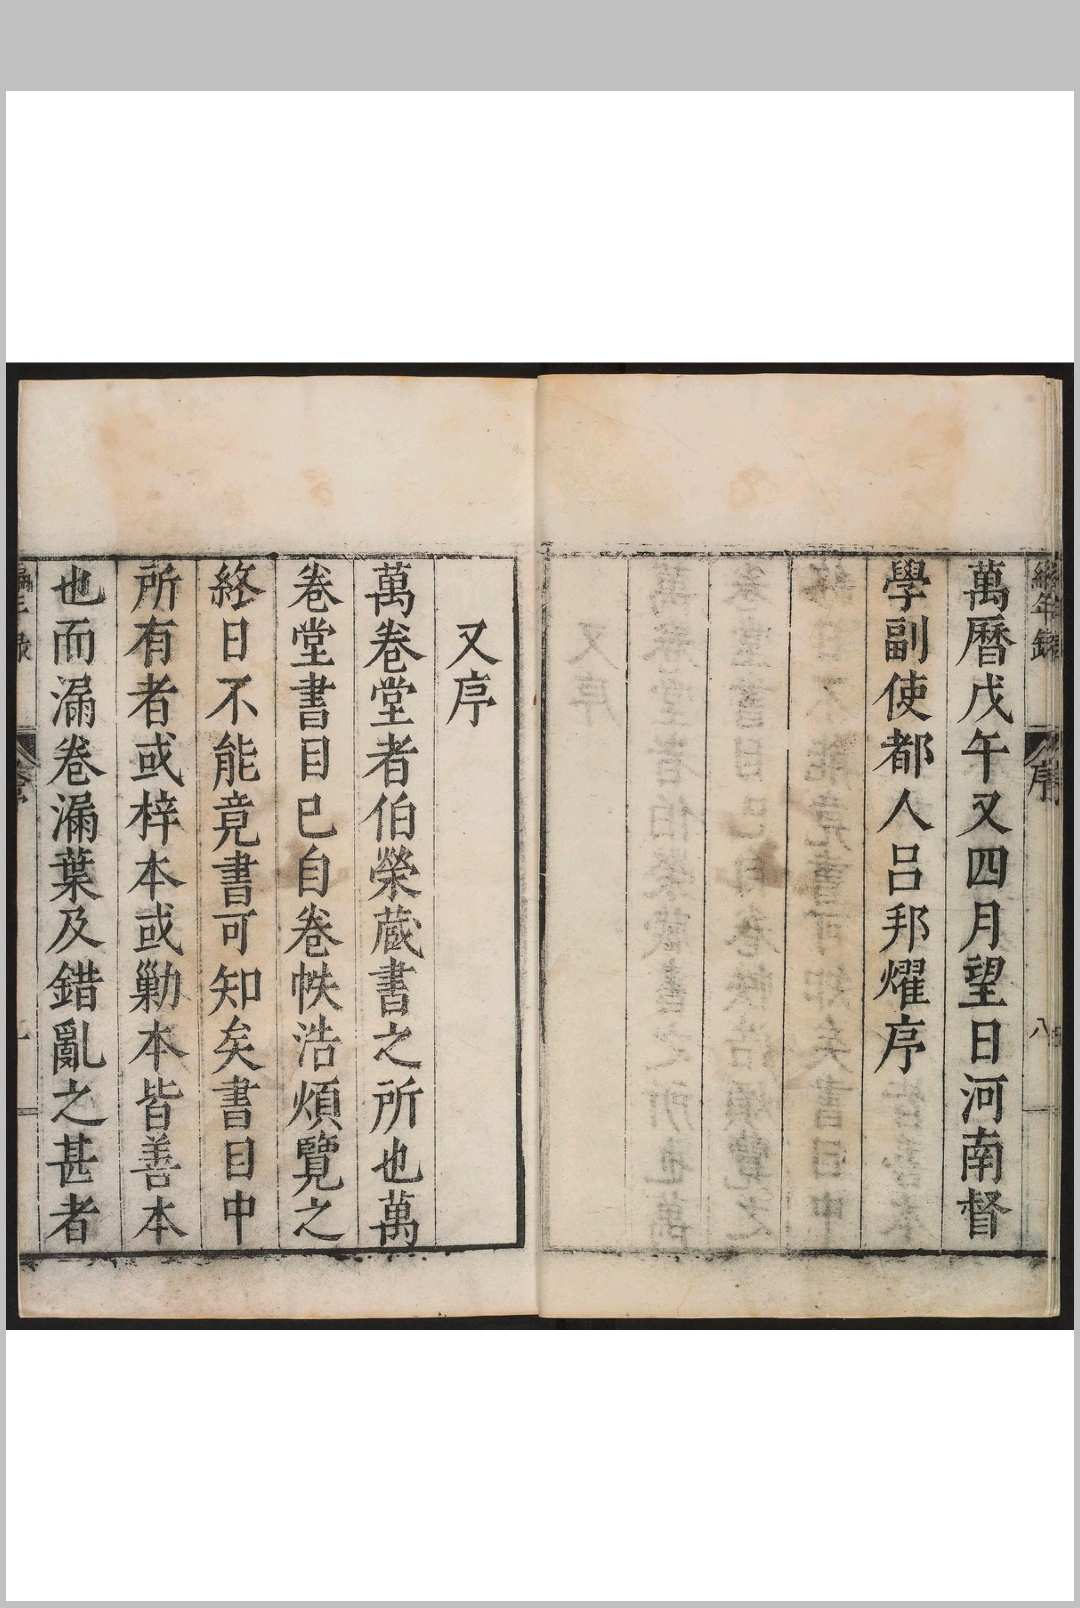 萬曆戊午又四月望日河南督
學副使都人呂邦燿序
又序
萬卷堂者伯榮蔵書之所也萬
卷堂書目已自卷帙浩煩覽之
終日不能竟書可知矣書目中
所有者或梓本或勦本皆善本
也而漏卷漏葉及錯亂之甚者